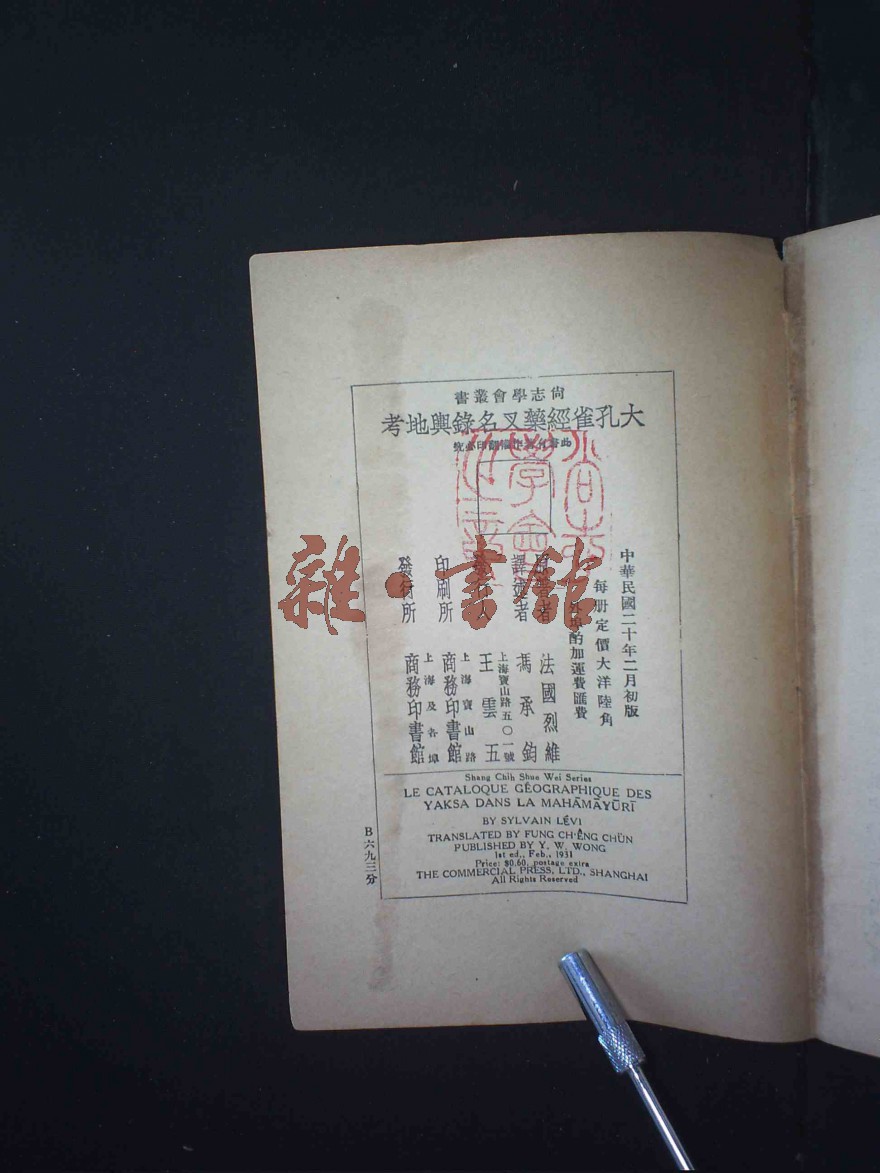 尚志學會叢書
大孔雀經藥叉名錄輿地考
此書有著作權翻印必究
中華民國二十年二月初版
每册定價大洋陸角
外埠酌加運費匯費
原著者 法國烈維
譯述者 馮承鈞
發行人 王雲五
上海寶山路五〇一號
印刷所 商務印書館
上海寶山路
發行所 商務印書館
上海及各埠
Shang Chih Shue Wei Series
LE CATALOQUE GÉOGRAPHIQUE DES
YAKSA DANS LA MAHĀMĀYŪRĪ
BY SYLVAIN LÉVI
TRANSLATED BY FUNG CH·ÊNG CHÜN
PUBLISHED BY Y. W. WONG
1st ed., Feb., 1931
Price: $0.60, postage extra
THE COMMERCIAL PRESS, LTD., SHANGHAI
All Rights Reserved
B六九三分
雜·書館